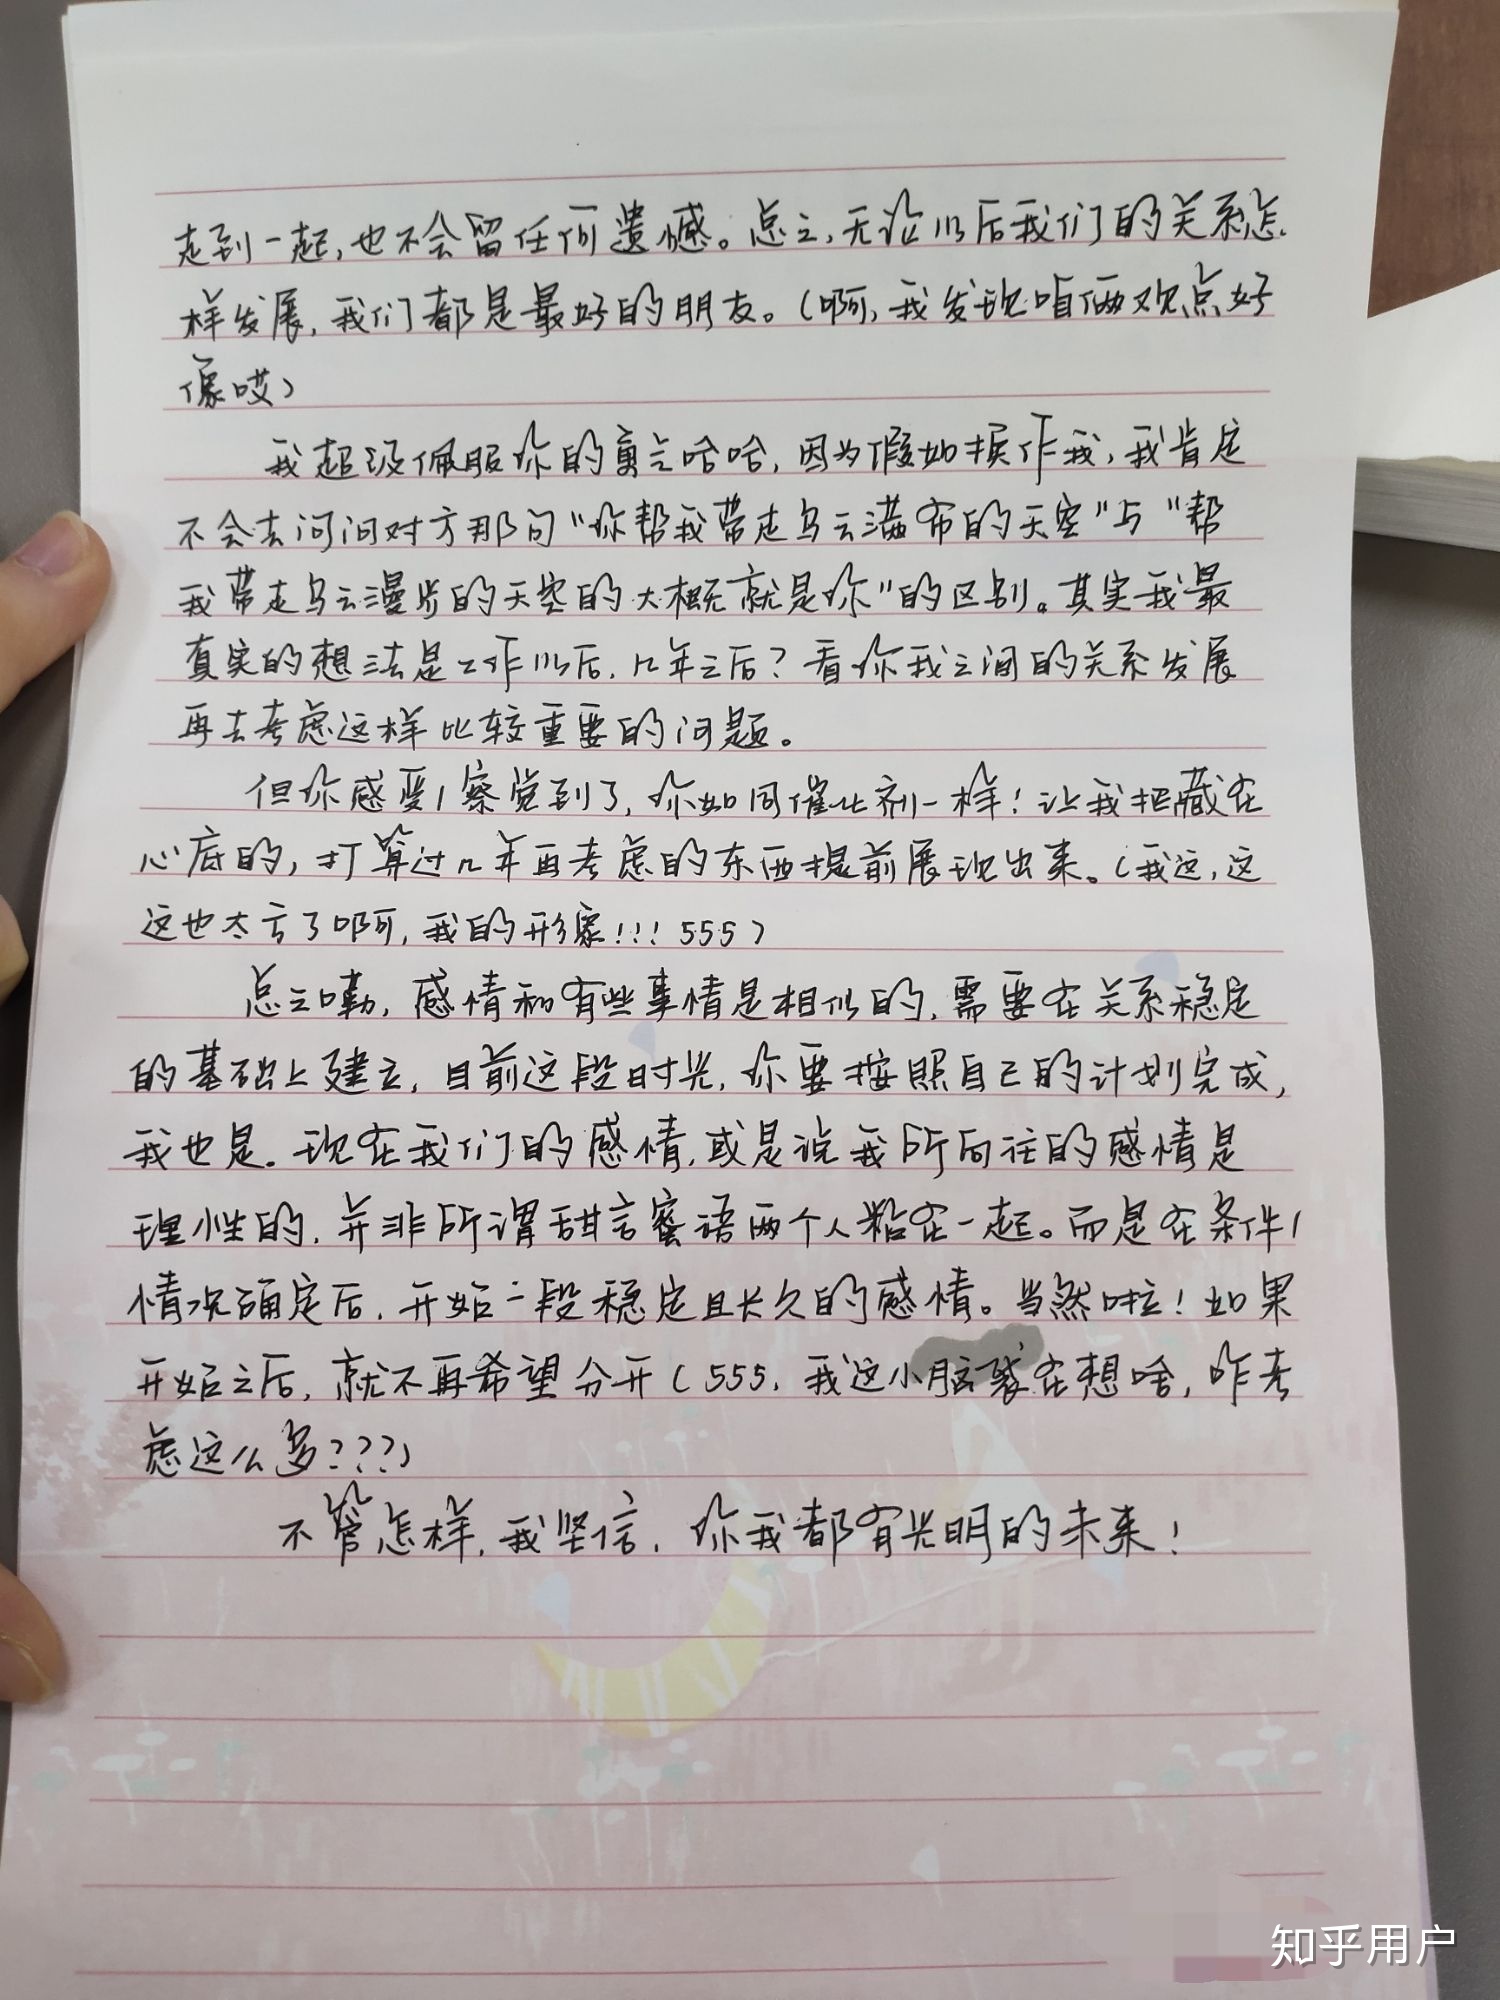 走到一起,也不会留任何遗憾。总之,无论以后我们的关系怎
样发展,我们都是最好的朋友。(啊,我发现咱俩观点好
像哎)
我超级佩服你的勇气哈哈,因为假如换作我,我肯定
不会去问问对方那句“你帮我带走乌云满布的天空”与“帮
我带走乌云漫步的天空的大概就是你”的区别。其实我最
真实的想法是工作以后,几年之后?看你我之间的关系发展
再去考虑这样比较重要的问题。
但你感受/察觉到了,你如同催化剂一样!让我把藏在
心底的,打算过几年再考虑的东西提前展现出来。(我这,这
这也太亏了啊,我的形象!!!555)
总之嘞,感情和有些事情是相似的,需要在关系稳定
的基础上建立,目前这段时光,你要按照自己的计划完成,
我也是。现在我们的感情,或是说我所向往的感情是
理性的,并非所谓甜言蜜语两个人粘在一起。而是在条件/
情况确定后,开始一段稳定且长久的感情。当然啦!如果
开始之后,就不再希望分开(555,我这小脑袋在想啥,咋考
虑这么多???)
不管怎样,我坚信,你我都有光明的未来!
知乎用户